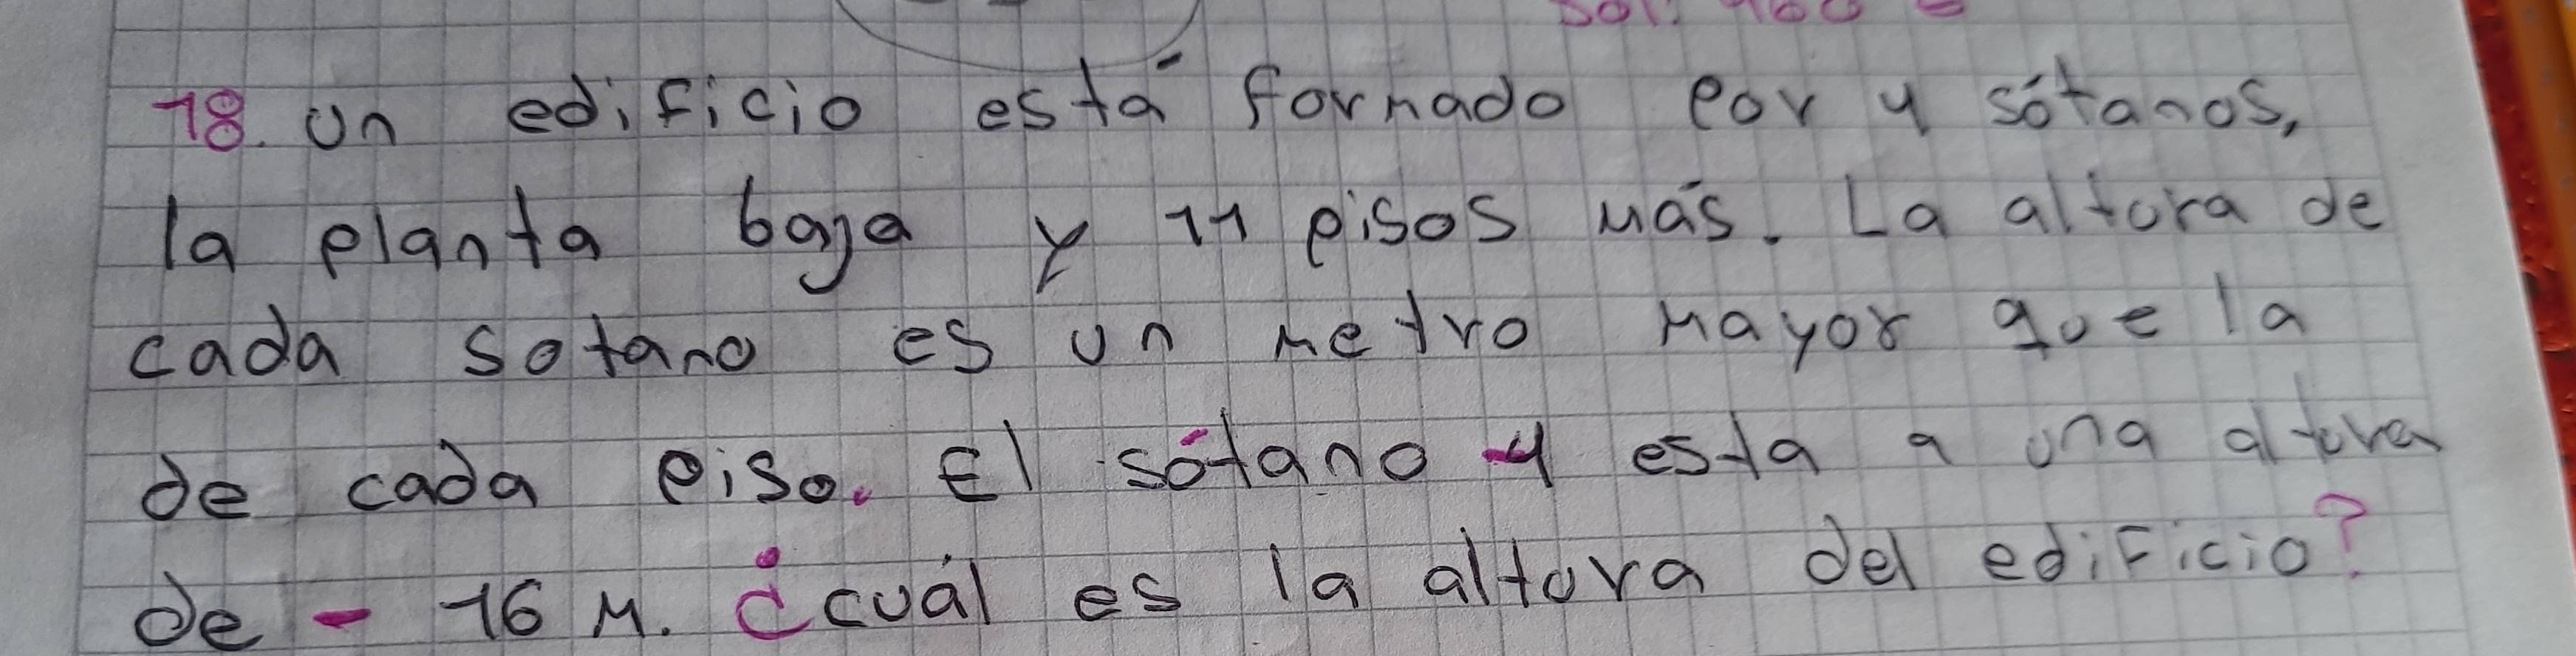 18. Un edificio está formado por 4 sótanos,
la planta baja y 11 pisos más. La altura de
cada sotano es un metro mayor que la
de cada piso. El sótano -4 esta a una altura
de - 16 M. ¿cuál es la altura del edificio?